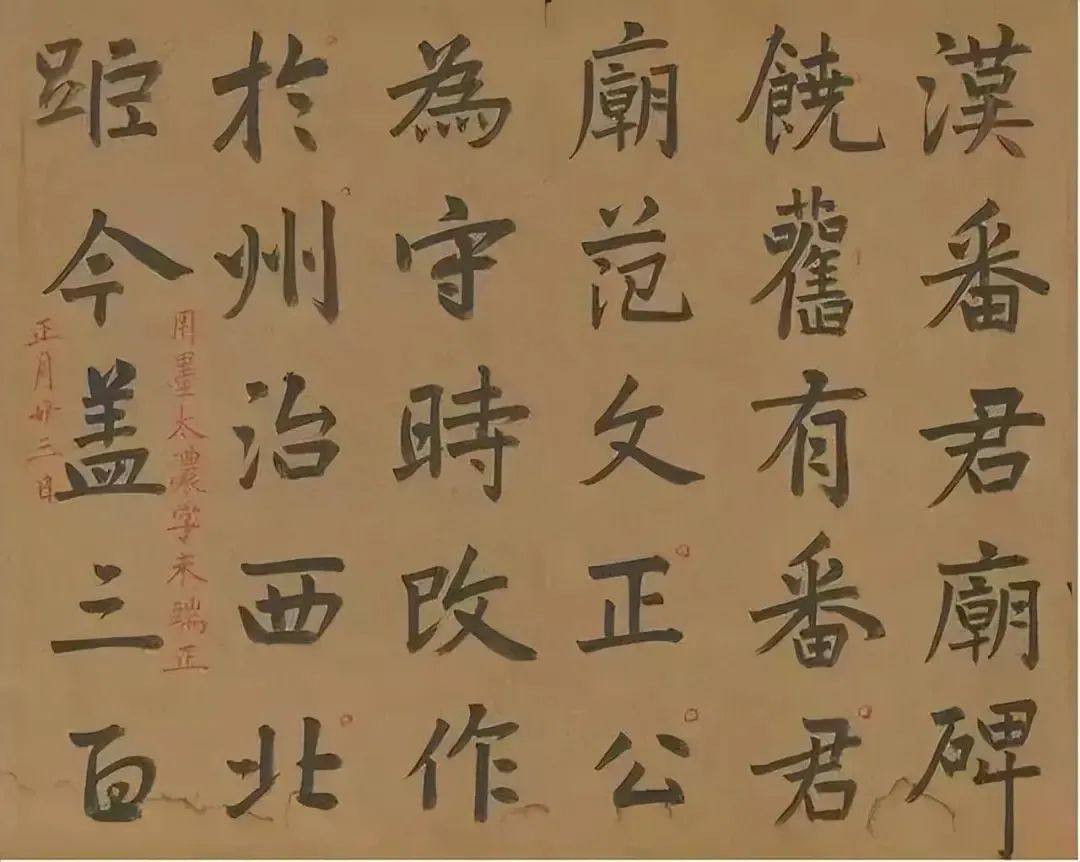 漢番君廟碑
饒舊有番君
廟范文正公
為守時改作
於州治西北
距今盖三百
用墨太濃字未端正
正月廿三日